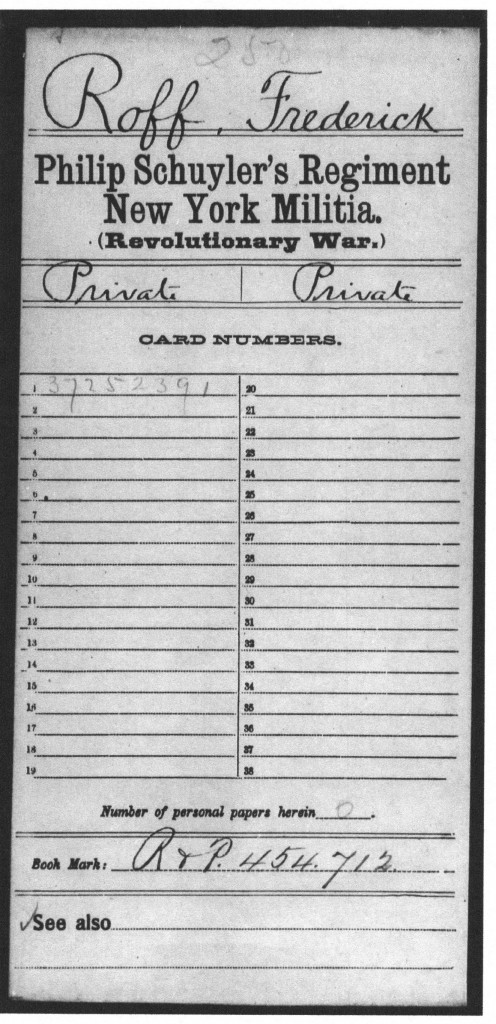 Roff, Frederick
Philip Schuyler's Regiment
New York Militia.
(Revolutionary War.)
Private | Private
CARD NUMBERS.
1 37252391 20
2 21
3 22
4 23
5 24
6 25
7 26
8 27
9 28
10 29
11 30
12 31
13 32
14 33
15 34
16 35
17 36
18 37
19 38
Number of personal papers herein 0.
Book Mark: R & P. 454.712.
See also